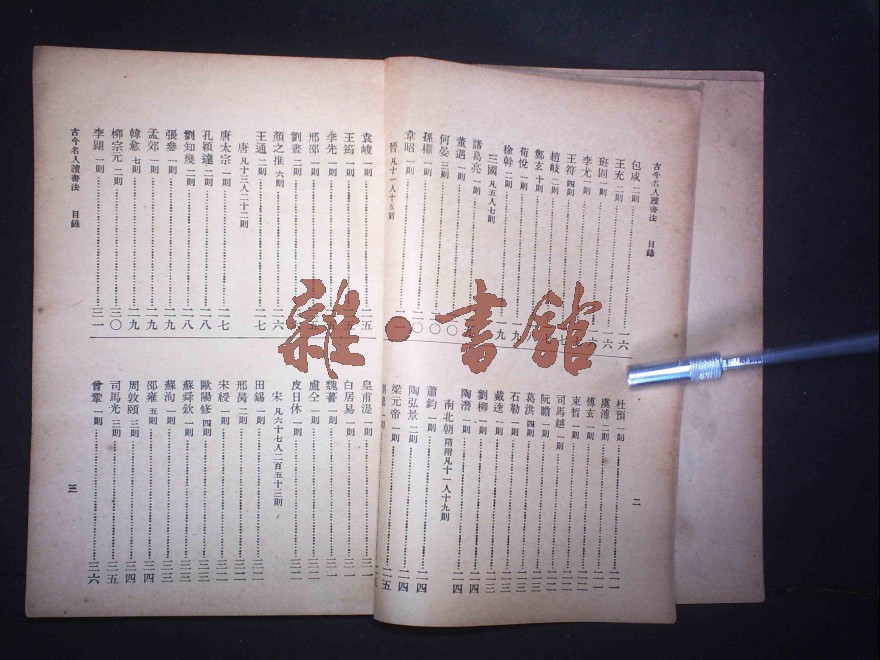 古今名人讀書法 目錄
包咸 二則 一六
王充 二則 一六
班固 一則 一六
李尤 一則
王符 四則
趙岐 二則
鄭玄 十則
荀悅 一則
徐幹 二則 一九
三國 凡五人七則
諸葛亮 一則
董遇 一則
何晏 三則 二〇
孫權 一則 二〇
韋昭 一則
晉 凡十一人十五則
杜預 一則 二一
虞溥 二則 二一
傅玄 一則
束皙 一則 二二
司馬越 一則 二二
阮瞻 一則 二二
葛洪 四則 二二
石勒 一則 二三
戴逵 一則 二三
劉柳 一則 二四
陶潛 一則 二四
南北朝 隋附凡十一人十九則
蕭鈞 一則 二四
陶弘景 二則 二四
梁元帝 一則 二五
二
袁峻 一則 二五
王筠 一則
李先 一則
邢邵 一則
劉晝 二則
顏之推 六則 二六
王通 二則 二七
唐 凡十三人二十二則
唐太宗 一則 二七
孔穎達 二則 二八
劉知幾 二則 二八
張參 一則 二九
孟郊 一則 二九
韓愈 七則 二九
柳宗元 二則 三〇
李翺 一則 三一
古今名人讀書法 目錄
皇甫湜 一則 三一
白居易 一則 三一
魏謩 一則 三一
盧仝 一則 三一
皮日休 一則 三一
宋 凡六十七人二百五十三則
田錫 一則 三二
邢昺 二則 三二
宋綬 一則 三三
歐陽修 四則 三三
蘇舜欽 一則 三三
蘇洵 一則 三四
邵雍 五則 三四
周敦頤 三則 三四
司馬光 三則 三五
曾鞏 一則 三六
三
雜·書館